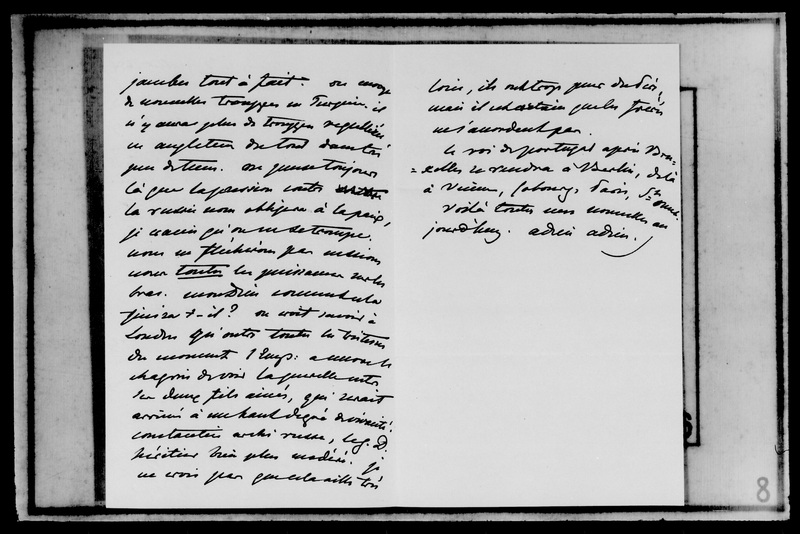 jambes tout à fait. on envoye
de nouvelles trouppes en Turquie. il
n'y aura plus de trouppes regulières
en angleterre du tout dans très
peu de tems. on pense toujours
là que la pression contre
la russie nous obligera à la paix,
je crains qu'on ne se trompe.
nous ne fléchirons pas
toutes les puissances sur les
bras. mon Dieu comment cela
finira t-il? on croit savoir à
Londres qu'outre toutes les
du moment l'Emp: a encore le
chagrin de voir la querelle entre
ses deux fils ainés, qui serait
arrivée à un haut degré de vivacité.
constantin archi russe, le g. D.
héritier bien plus modéré. je
ne crois pas que cela aille très
loin, ils ont trop peur du Père,
mais il est certain que les frères
ne s'accordent pas.
le roi de portugal après Bru-
=xelles se rendra à Berlin, de là
à Vienne, Cobourg, Paris, &
voilà toutes mes nouvelles au
jourd'huy. adieu adieu.
8